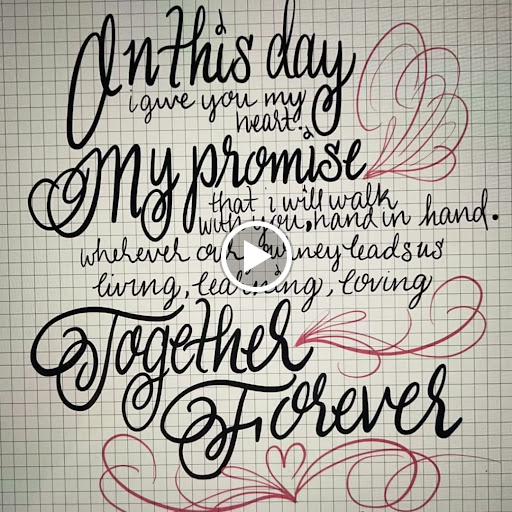 On this day
i give you my
heart.
My promise
that i will walk
with you, hand in hand.
wherever our journey leads us
living, learning, loving
Together
Forever